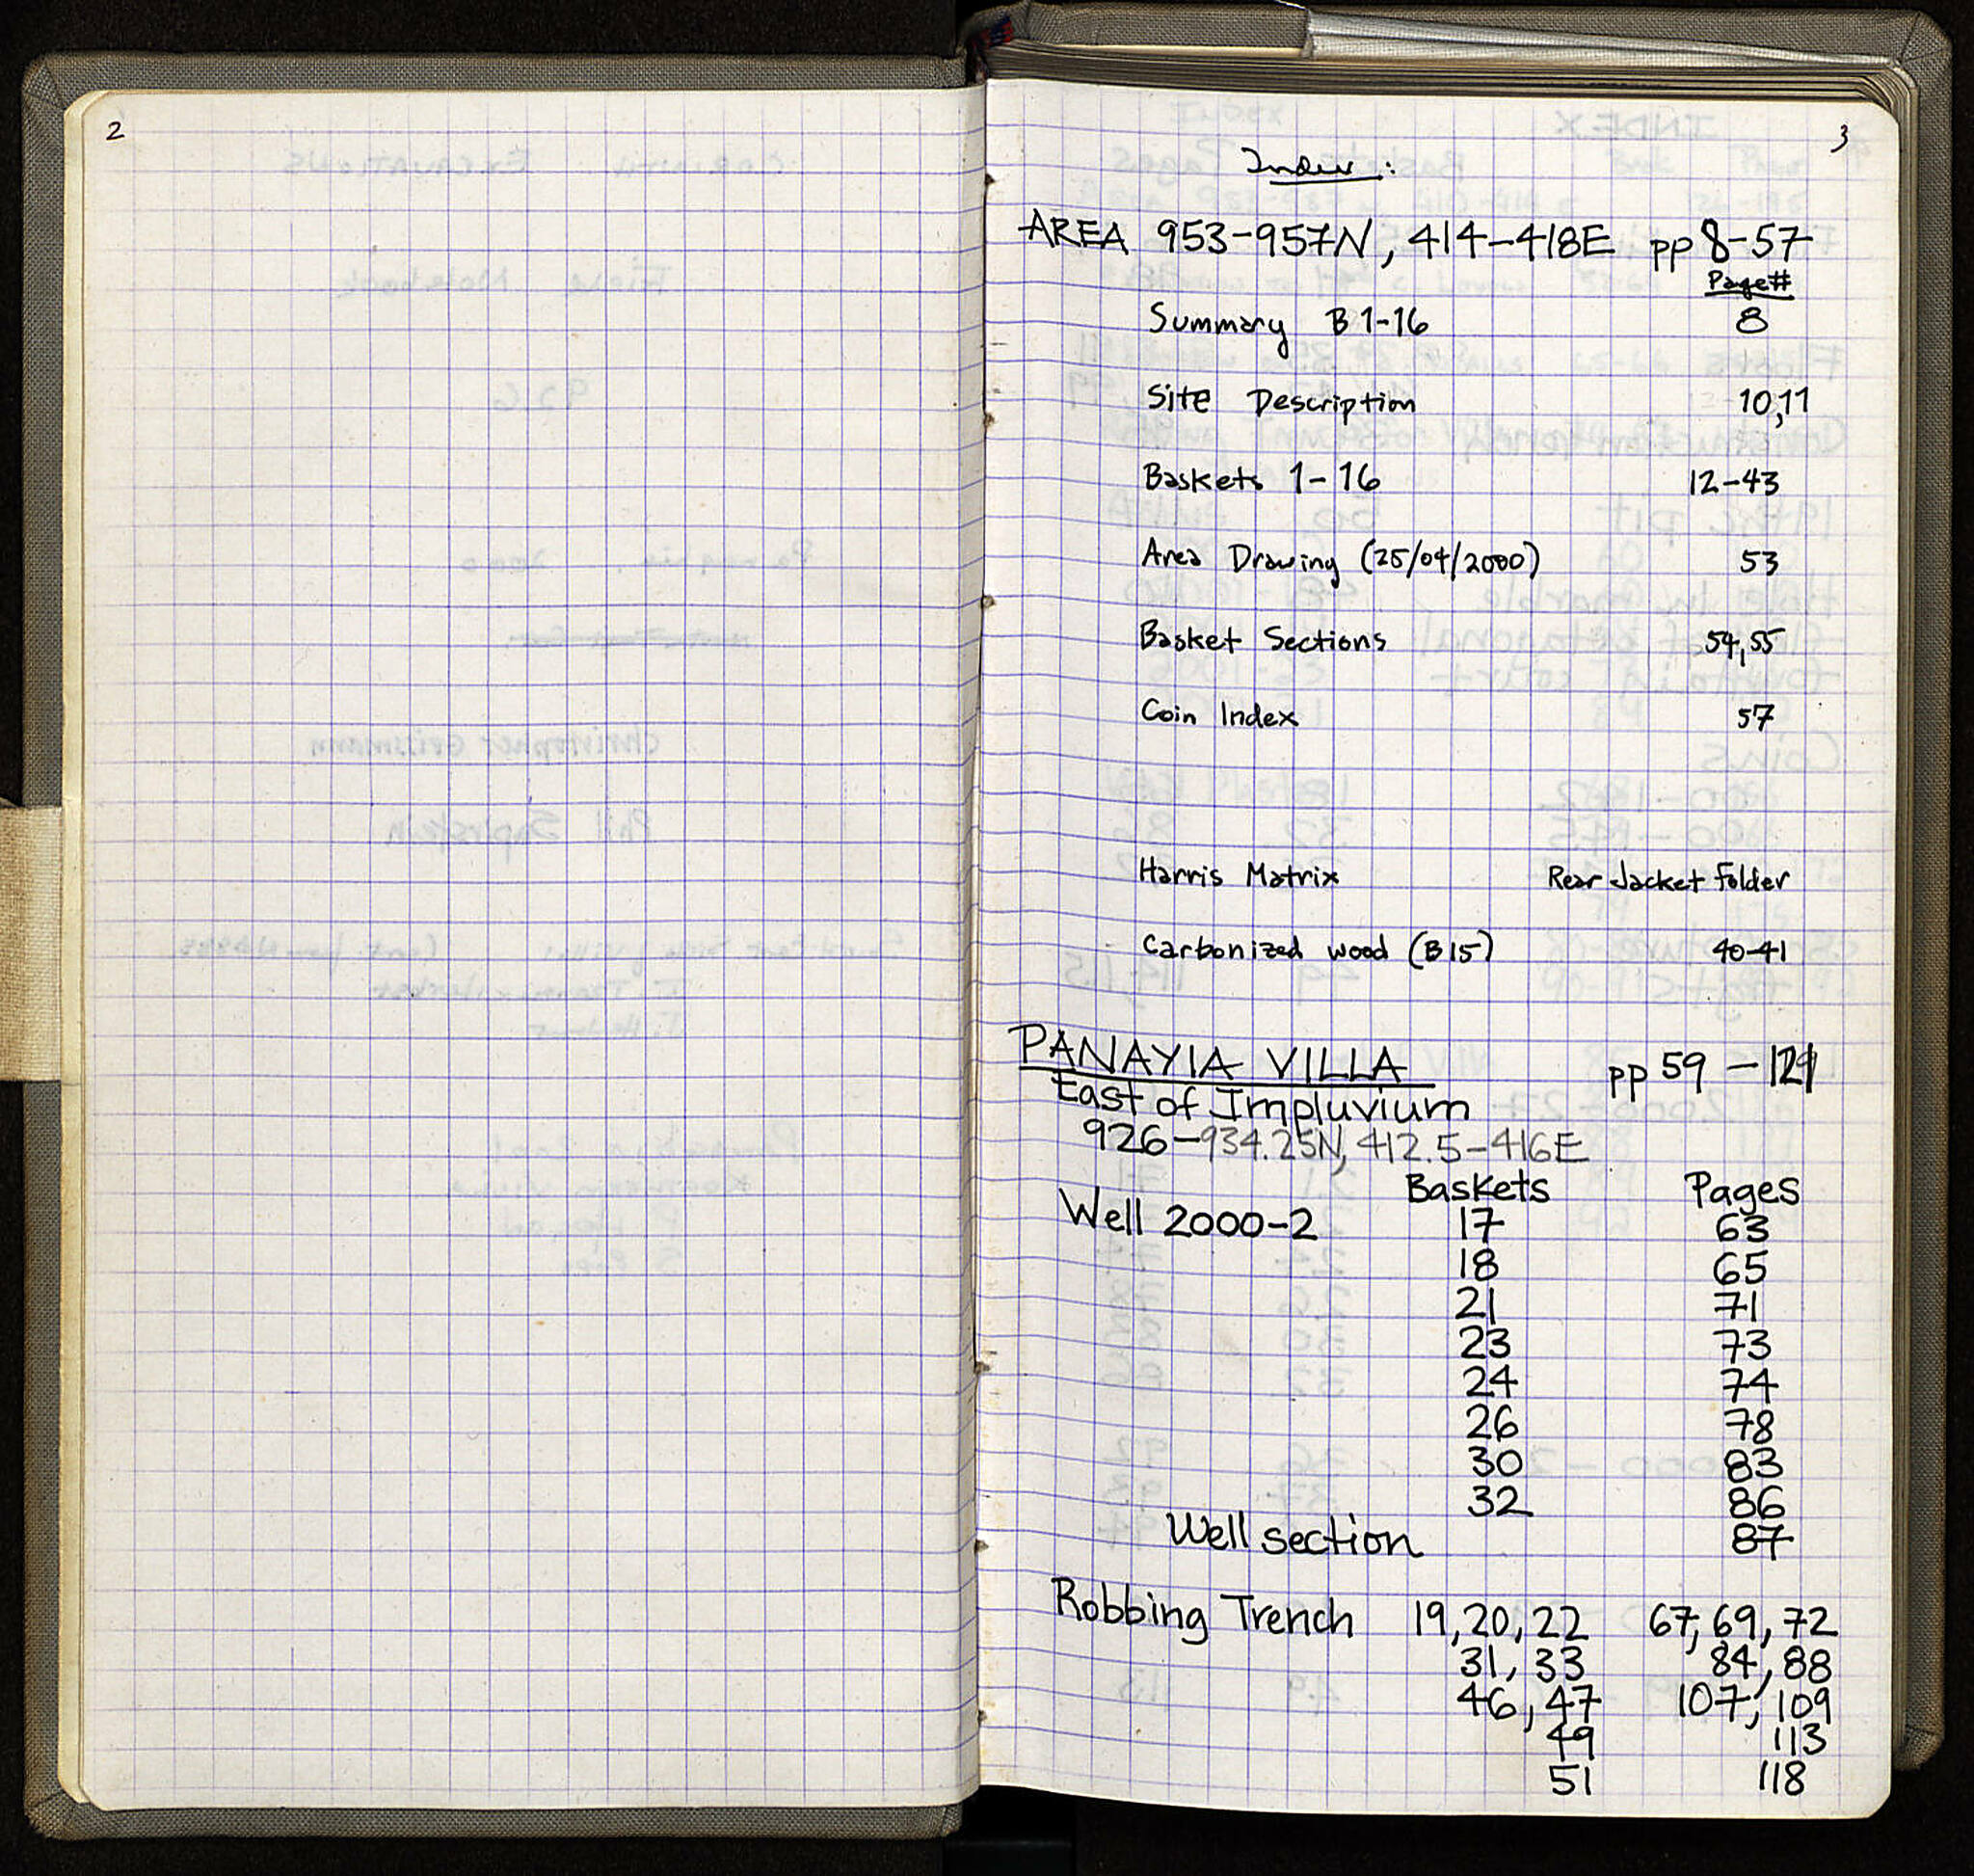 2
3
Index:
AREA 953-957N, 414-418E pp 8-57
Page#
Summary B 1-16 8
Site Description 10,11
Baskets 1-16 12-43
Area Drawing (25/04/2000) 53
Basket Sections 54,55
Coin Index 57
Harris Matrix Rear Jacket Folder
Carbonized wood (B15) 40-41
PANAYIA VILLA pp 59-121
East of Impluvium
926-934.25N, 412.5-416E
Baskets Pages
Well 2000-2 17 63
18 65
21 71
23 73
24 74
26 78
30 83
32 86
Well section 87
Robbing Trench 19,20,22 67,69,72
31,33 84,88
46,47 107,109
49 113
51 118